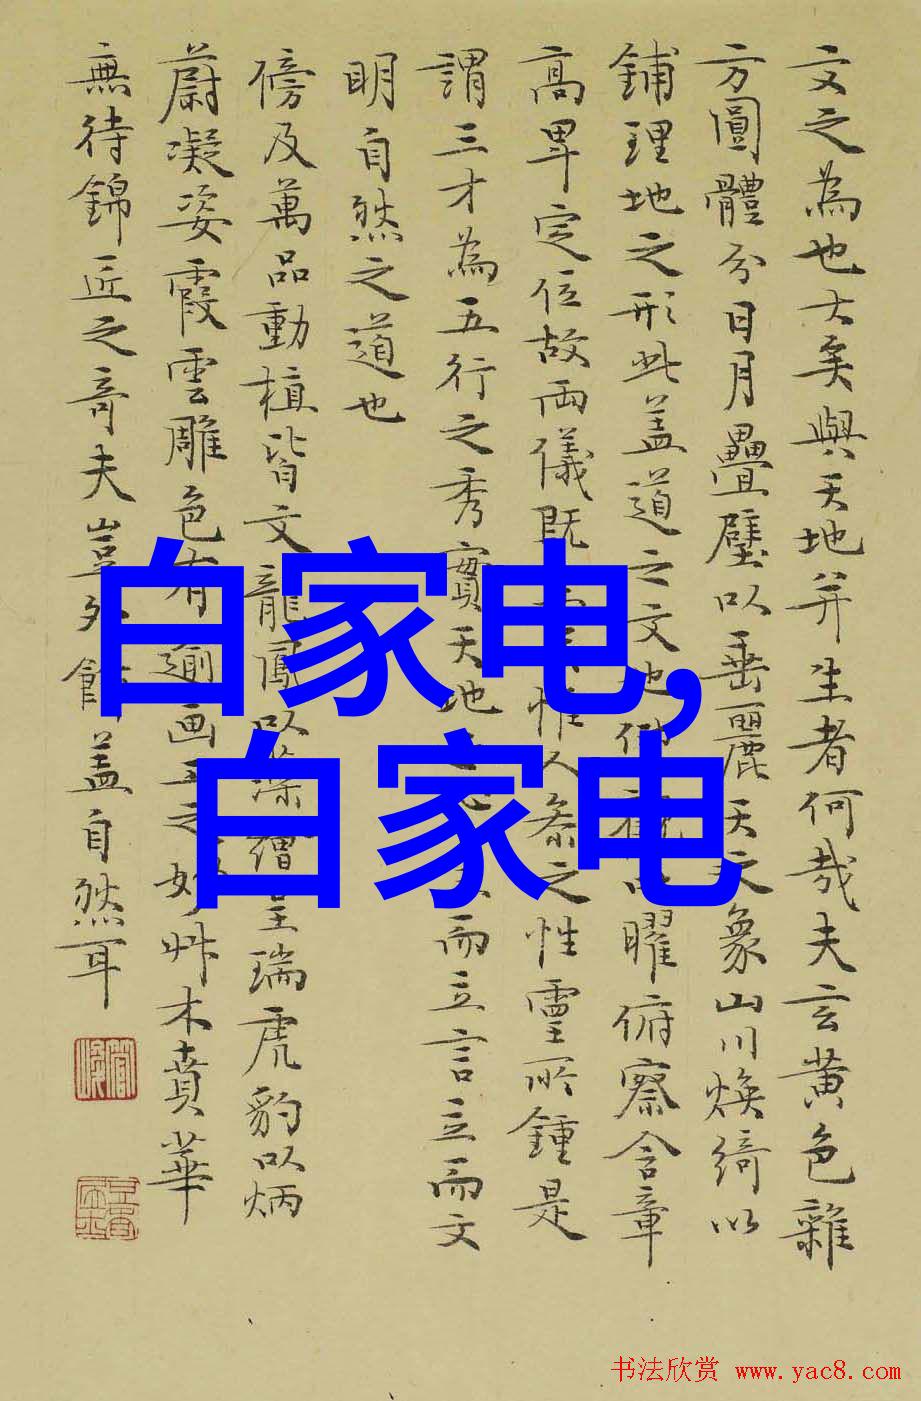 文之為也大矣與天地并生者何哉夫玄黄色雜
方圓體分日月疊壁以垂麗天之象山川煥綺以
鋪理地之形此盖道之文也曜俯察含章
高卑定位故兩儀既惟人叅之性靈所鍾是
謂三才為五行之秀實天地而立言立而文
明自然之道也
傍及萬品動植皆文龍鳳以藻繪呈瑞虎豹以炳
蔚凝姿霞雲雕色有逾画工之妙艸木賁華
無待錦匠之奇夫豈外飾盖自然耳
白家电,
白家电
书法欣赏 www.yac8.com